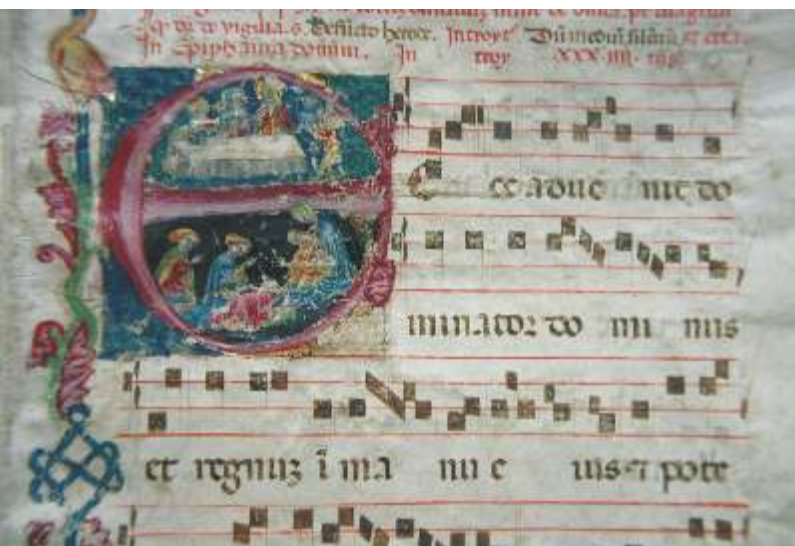 vigilia s. Defuncto herode. Introyt Dum mediu silēciu
In Epiphania domini. In troy XXX IIII
Ecce adue nit do
minator do mi nus
et regnuz ī ma nu e ius et pote